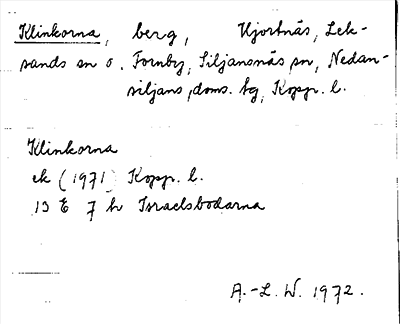 Klinkorna, berg, Hjortnäs, Lek-
sands sn o. Fornby, Siljansnäs sn, Nedan-
siljans doms. tg, Kopp. l.
Klinkorna
ek (1971) Kopp. l.
13 E 7 h Israelsbodarna
A.-L. W. 1972.